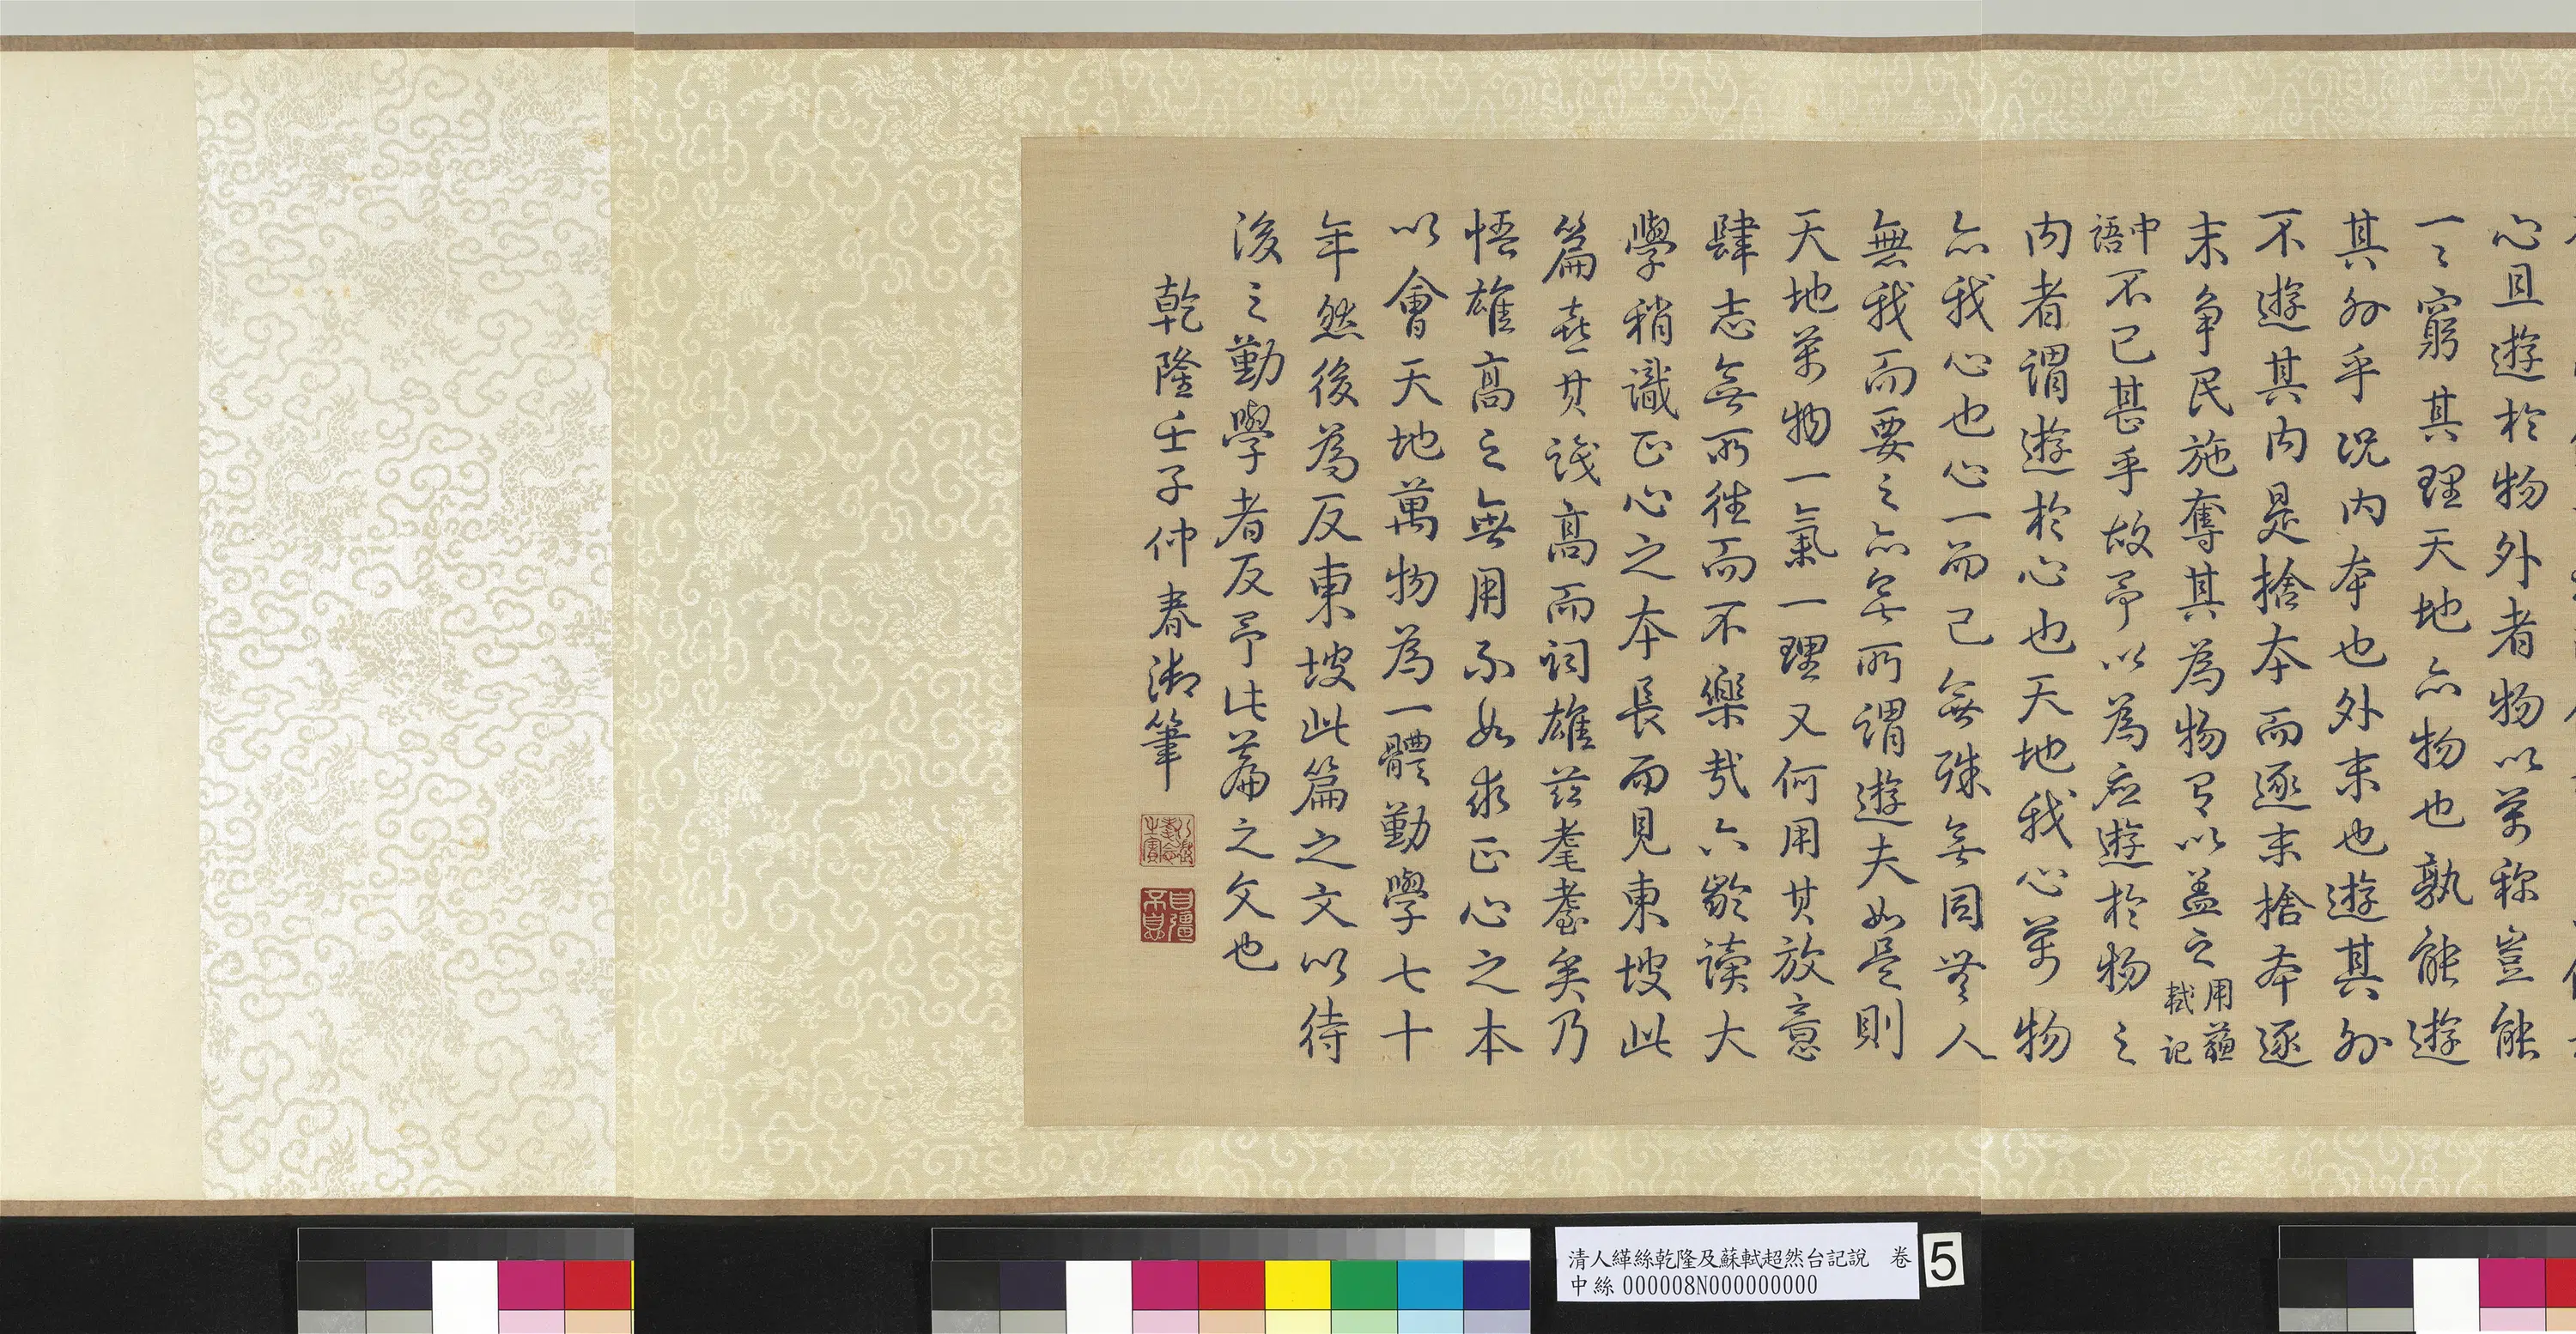 心且遊於物外者物以萬称豈能
一〻窮其理天地亦物也孰能遊
其外乎況内本也外末也遊其外
不遊其内是捨本而逐末捨本逐
末争民施奪其為物有以盖之用蘓軾記
中語不已甚乎故予以為应遊於物之
内者謂遊於心也天地我心萬物
亦我心也心一而已無殊無同無人
無我而要之亦無所謂遊夫如是則
天地萬物一氣一理又何用其放意
肆志無所往而不樂哉六齡读大
學稍識正心之本長而見東坡此
篇喜其識高而词雄兹耄耋矣乃
悟雄高之無用不如求正心之本
以會天地萬物為一體勤學七十
年然後為反東坡此篇之文以待
後之勤學者反予此篇之文也
乾隆壬子仲春御筆
八徵耄念之寶
自彊不息
清人緙絲乾隆及蘇軾超然台記說　卷
中絲 000008N000000000
5